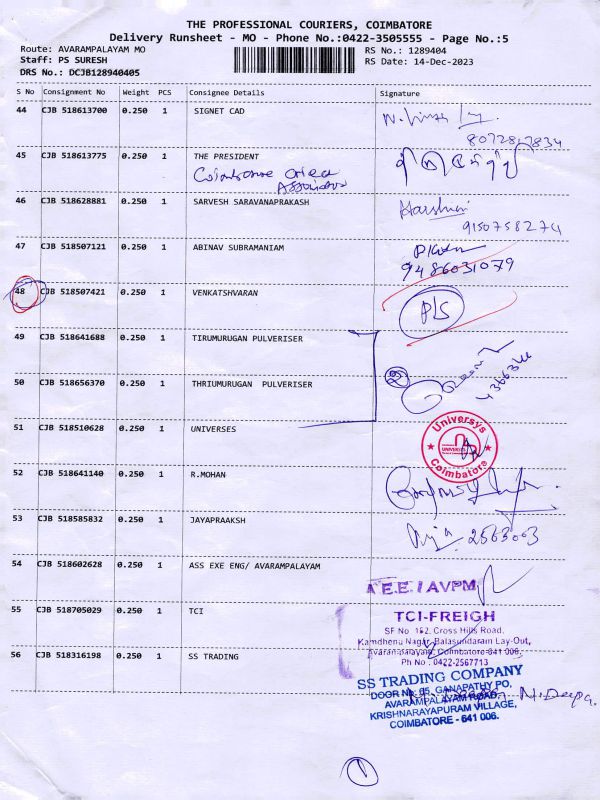 THE PROFESSIONAL COURIERS, COIMBATORE
Delivery Runsheet - MO - Phone No.:0422-3505555 - Page No.:5
Route: AVARAMPALAYAM MO
RS No.: 1289404
Staff: PS SURESH
RS Date: 14-Dec-2023
DRS No.: DCJB128940405
S No Consignment No Weight PCS Consignee Details Signature
44 CJB 518613700 0.250 1 SIGNET CAD
45 CJB 518613775 0.250 1 THE PRESIDENT
Association
46 CJB 518628881 0.250 1 SARVESH SARAVANAPRAKASH
9150758274
47 CJB 518507121 0.250 1 ABINAV SUBRAMANIAM
9486031079
48 CJB 518507421 0.250 1 VENKATSHVARAN
P/S
49 CJB 518641688 0.250 1 TIRUMURUGAN PULVERISER
50 CJB 518656370 0.250 1 THRIUMURUGAN PULVERISER
2
51 CJB 518510628 0.250 1 UNIVERSES
Universys
UNIVERSYS
Coimbatore
52 CJB 518641140 0.250 1 R.MOHAN
53 CJB 518585832 0.250 1 JAYAPRAAKSH
2563003
54 CJB 518602628 0.250 1 ASS EXE ENG/ AVARAMPALAYAM
A.E.E. / AVPM
55 CJB 518705029 0.250 1 TCI
TCI-FREIGH
SF No 152, Cross Hills Road,
Kamdhenu Nagar, Balasundaram Lay-Out,
Avarampalayam, Coimbatore-641 006.
Ph No : 0422-2567713
56 CJB 518316198 0.250 1 SS TRADING
SS TRADING COMPANY
DOOR No: 65, GANAPATHY PO,
AVARAMPALAYAM ROAD,
KRISHNARAYAPURAM VILLAGE,
COIMBATORE - 641 006.
N. Deepa.